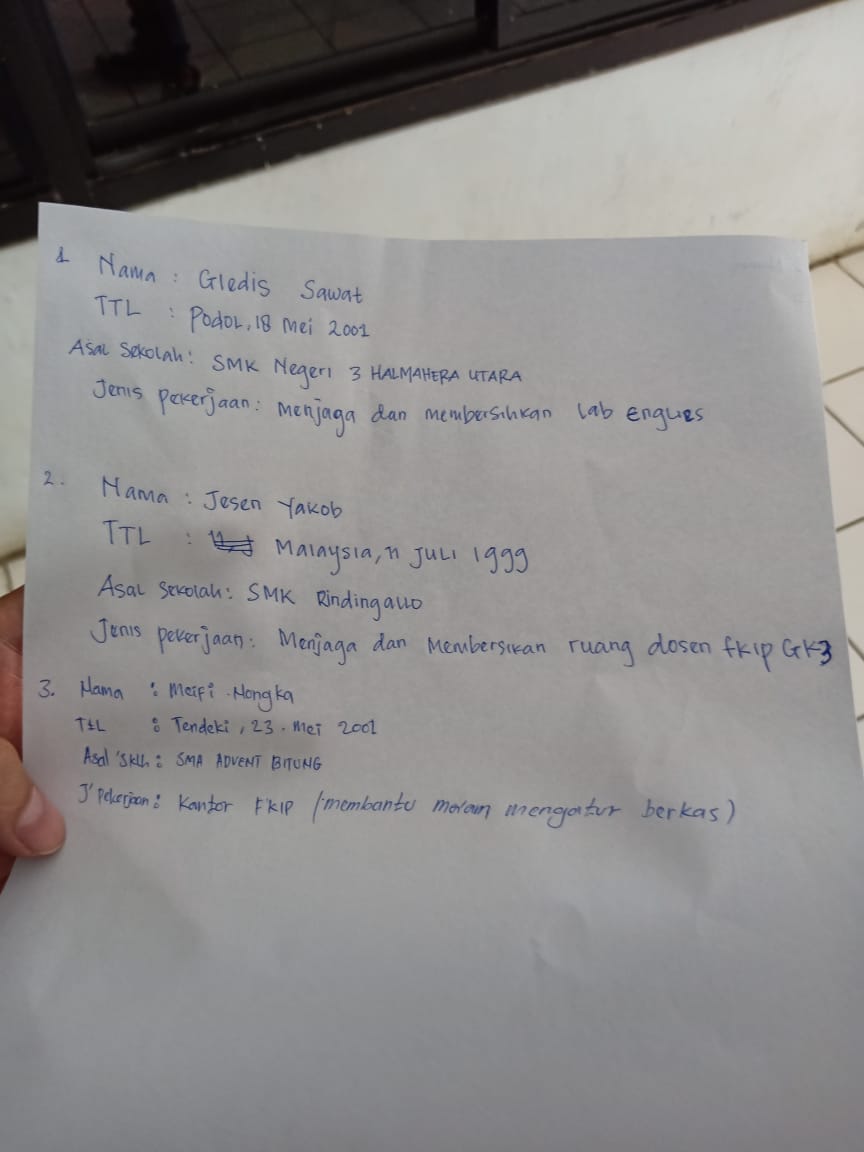 1 Nama : Gledis Sawat
TTL : Podol, 18 Mei 2001
Asal Sekolah : SMK Negeri 3 HALMAHERA UTARA
Jenis pekerjaan : Menjaga dan membersihkan lab
2. Nama : Jesen Yakob
TTL : Malaysia, 11 JULI 1999
Asal Sekolah : SMK Rindingallo
Jenis pekerjaan : Menjaga dan Membersikan ruang dosen fkip GK3
3. Nama : Meifi Nongka
TTL : Tendeki, 23 . Mei 2001
Asal 'Sklh : SMA ADVENT BITUNG
J' Pekerjaan : Kantor FKIP (membantu mengatur berkas)